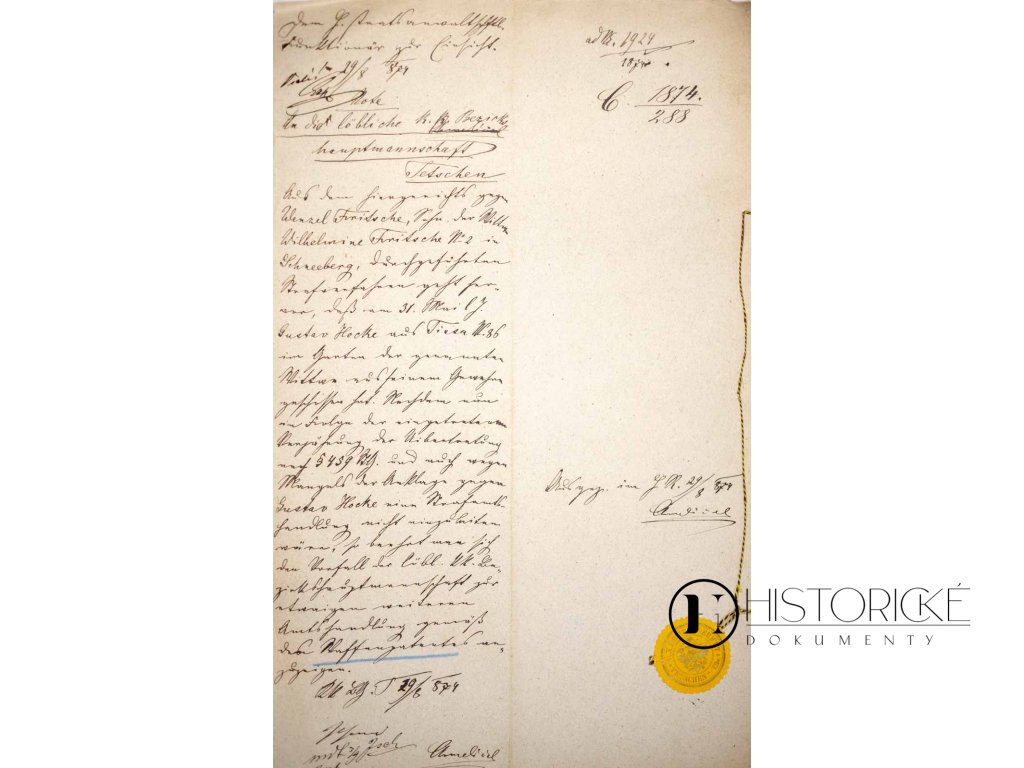 Dem H. staatsanwaltschftl.
Funktionär zur Einsicht.
29/8 874
Note
An die löbliche k. k. Bezirks
hauptmannschaft
Tetschen
Aus dem hiergerichts gegen
Wenzel Fritsche, Sohn der Wittwe
Wilhelmine Fritsche No 2 in
Schneeberg, durchgeführten
Strafverfahren geht her-
vor, daß am 31. Mai l. J.
Gustav Hocke aus Tissa N. 86
im Garten der genannten
Wittwe aus seinem Gewehre
geschossen hat. Nachdem nun
in Folge der eingetretenen
Verjährung der Uibertretung
nach § 459 StG. und auch wegen
Mangels der Anklage gegen
Gustav Hocke eine Strafamts
handlung nicht einzuleiten
wäre, so beehrt man sich
den Vorfall der löbl. kk. Be-
zirkshauptmannschaft zur
etwaigen weiteren
Amtshandlung gemäß
des Waffenpatentes an-
zuzeigen.
kk BG. T 29/8 874
ad N. 1924
1874
C. 1874.
288
Ausgeg. im 29/8 874
HISTORICKÉ
DOKUMENTY